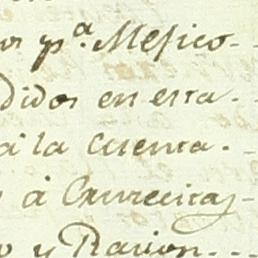 os p.ª Mexico
didos en esta
á la Cuenta.
á Carrecitas
y Racion